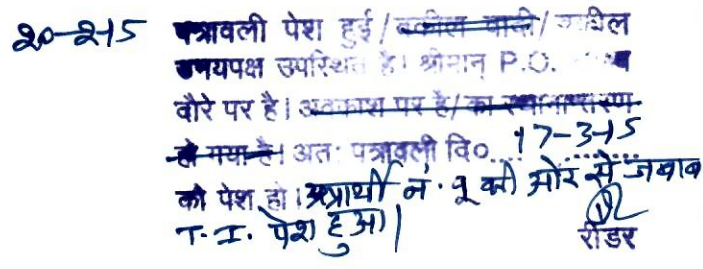 20-2-15 पत्रावली पेश हुई/ वकील वादी/ वकील
उभयपक्ष उपस्थित है। श्रीमान् P.O.
दौरे पर है। अवकाश पर है/ का स्थानान्तरण
हो गया है। अतः पत्रावली दि० 17-3-15
को पेश हो। अप्रार्थी नं. 2 की ओर से जवाब
T.I. पेश हुआ।
रीडर